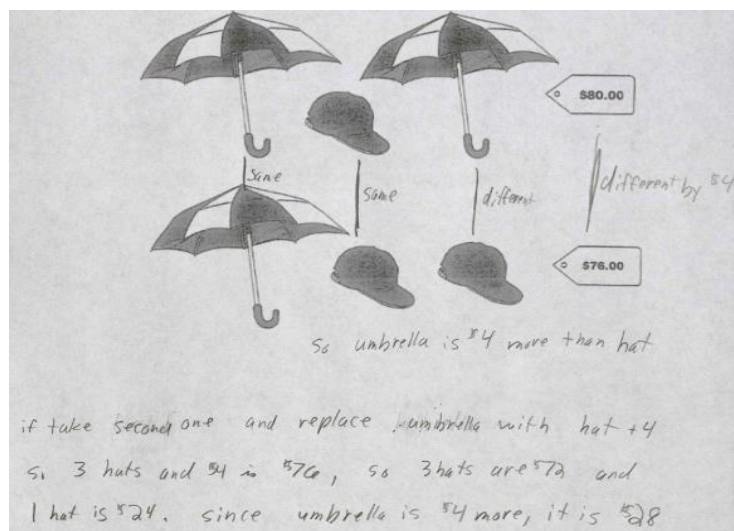 $80.00
same
same
different
different by $4
$76.00
so umbrella is $4 more than hat
if take second one and replace umbrella with hat +4
so 3 hats and $4 is $76, so 3 hats are $72 and
1 hat is $24. since umbrella is $4 more, it is $28